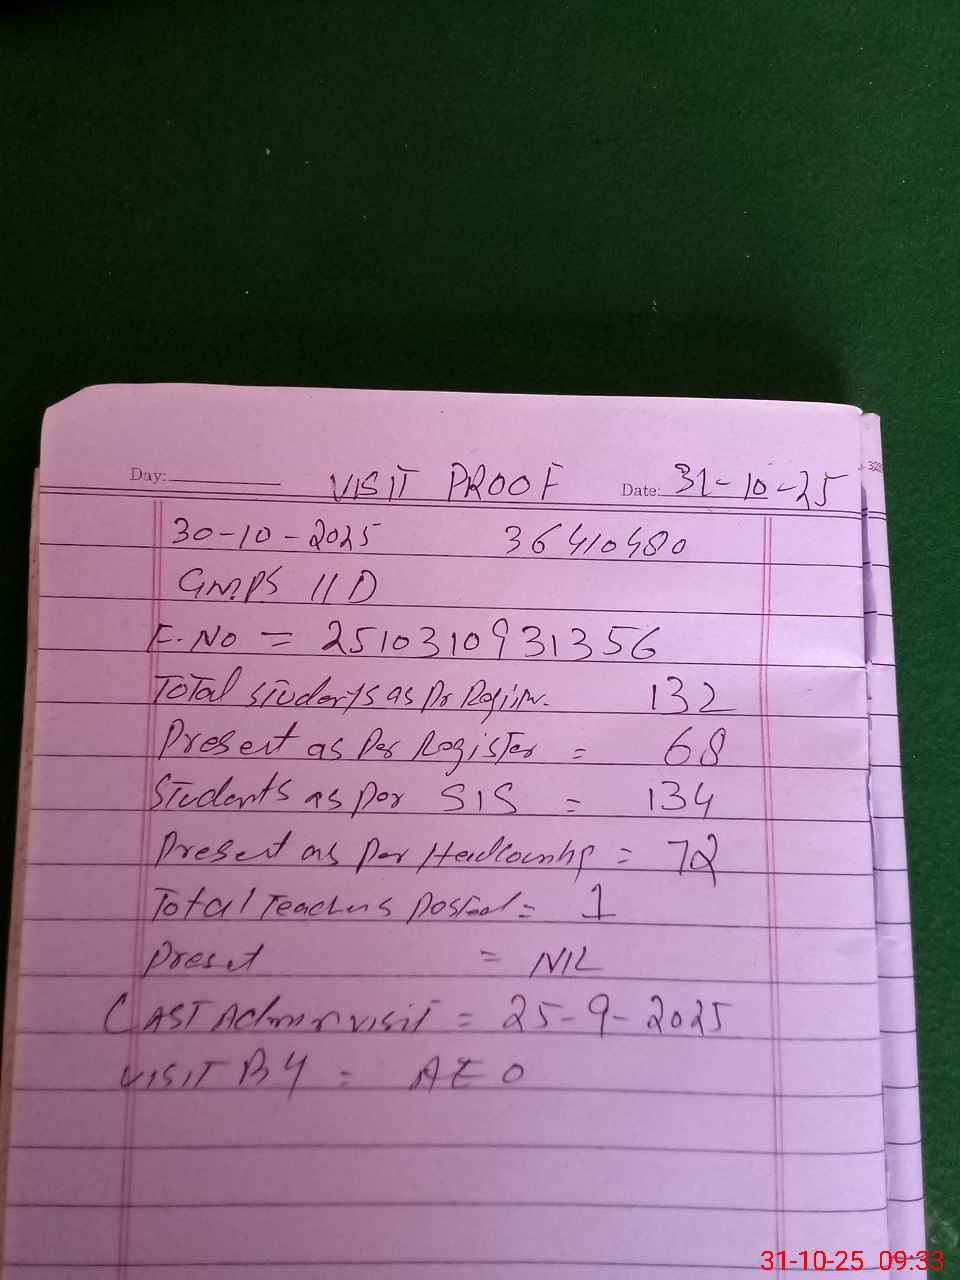 Day: VISIT PROOF Date: 31-10-25
30-10-2025 36410480
GMPS 11D
E.NO = 2510310931356
Total students as Pr Register. 132
Present as Per Register = 68
Students as per SIS = 134
Present as per Headcounts = 72
Total Teachers posted = 1
Preset = NIL
LAST Admin visit = 25-9-2025
VISIT BY = AEO
31-10-25 09:33